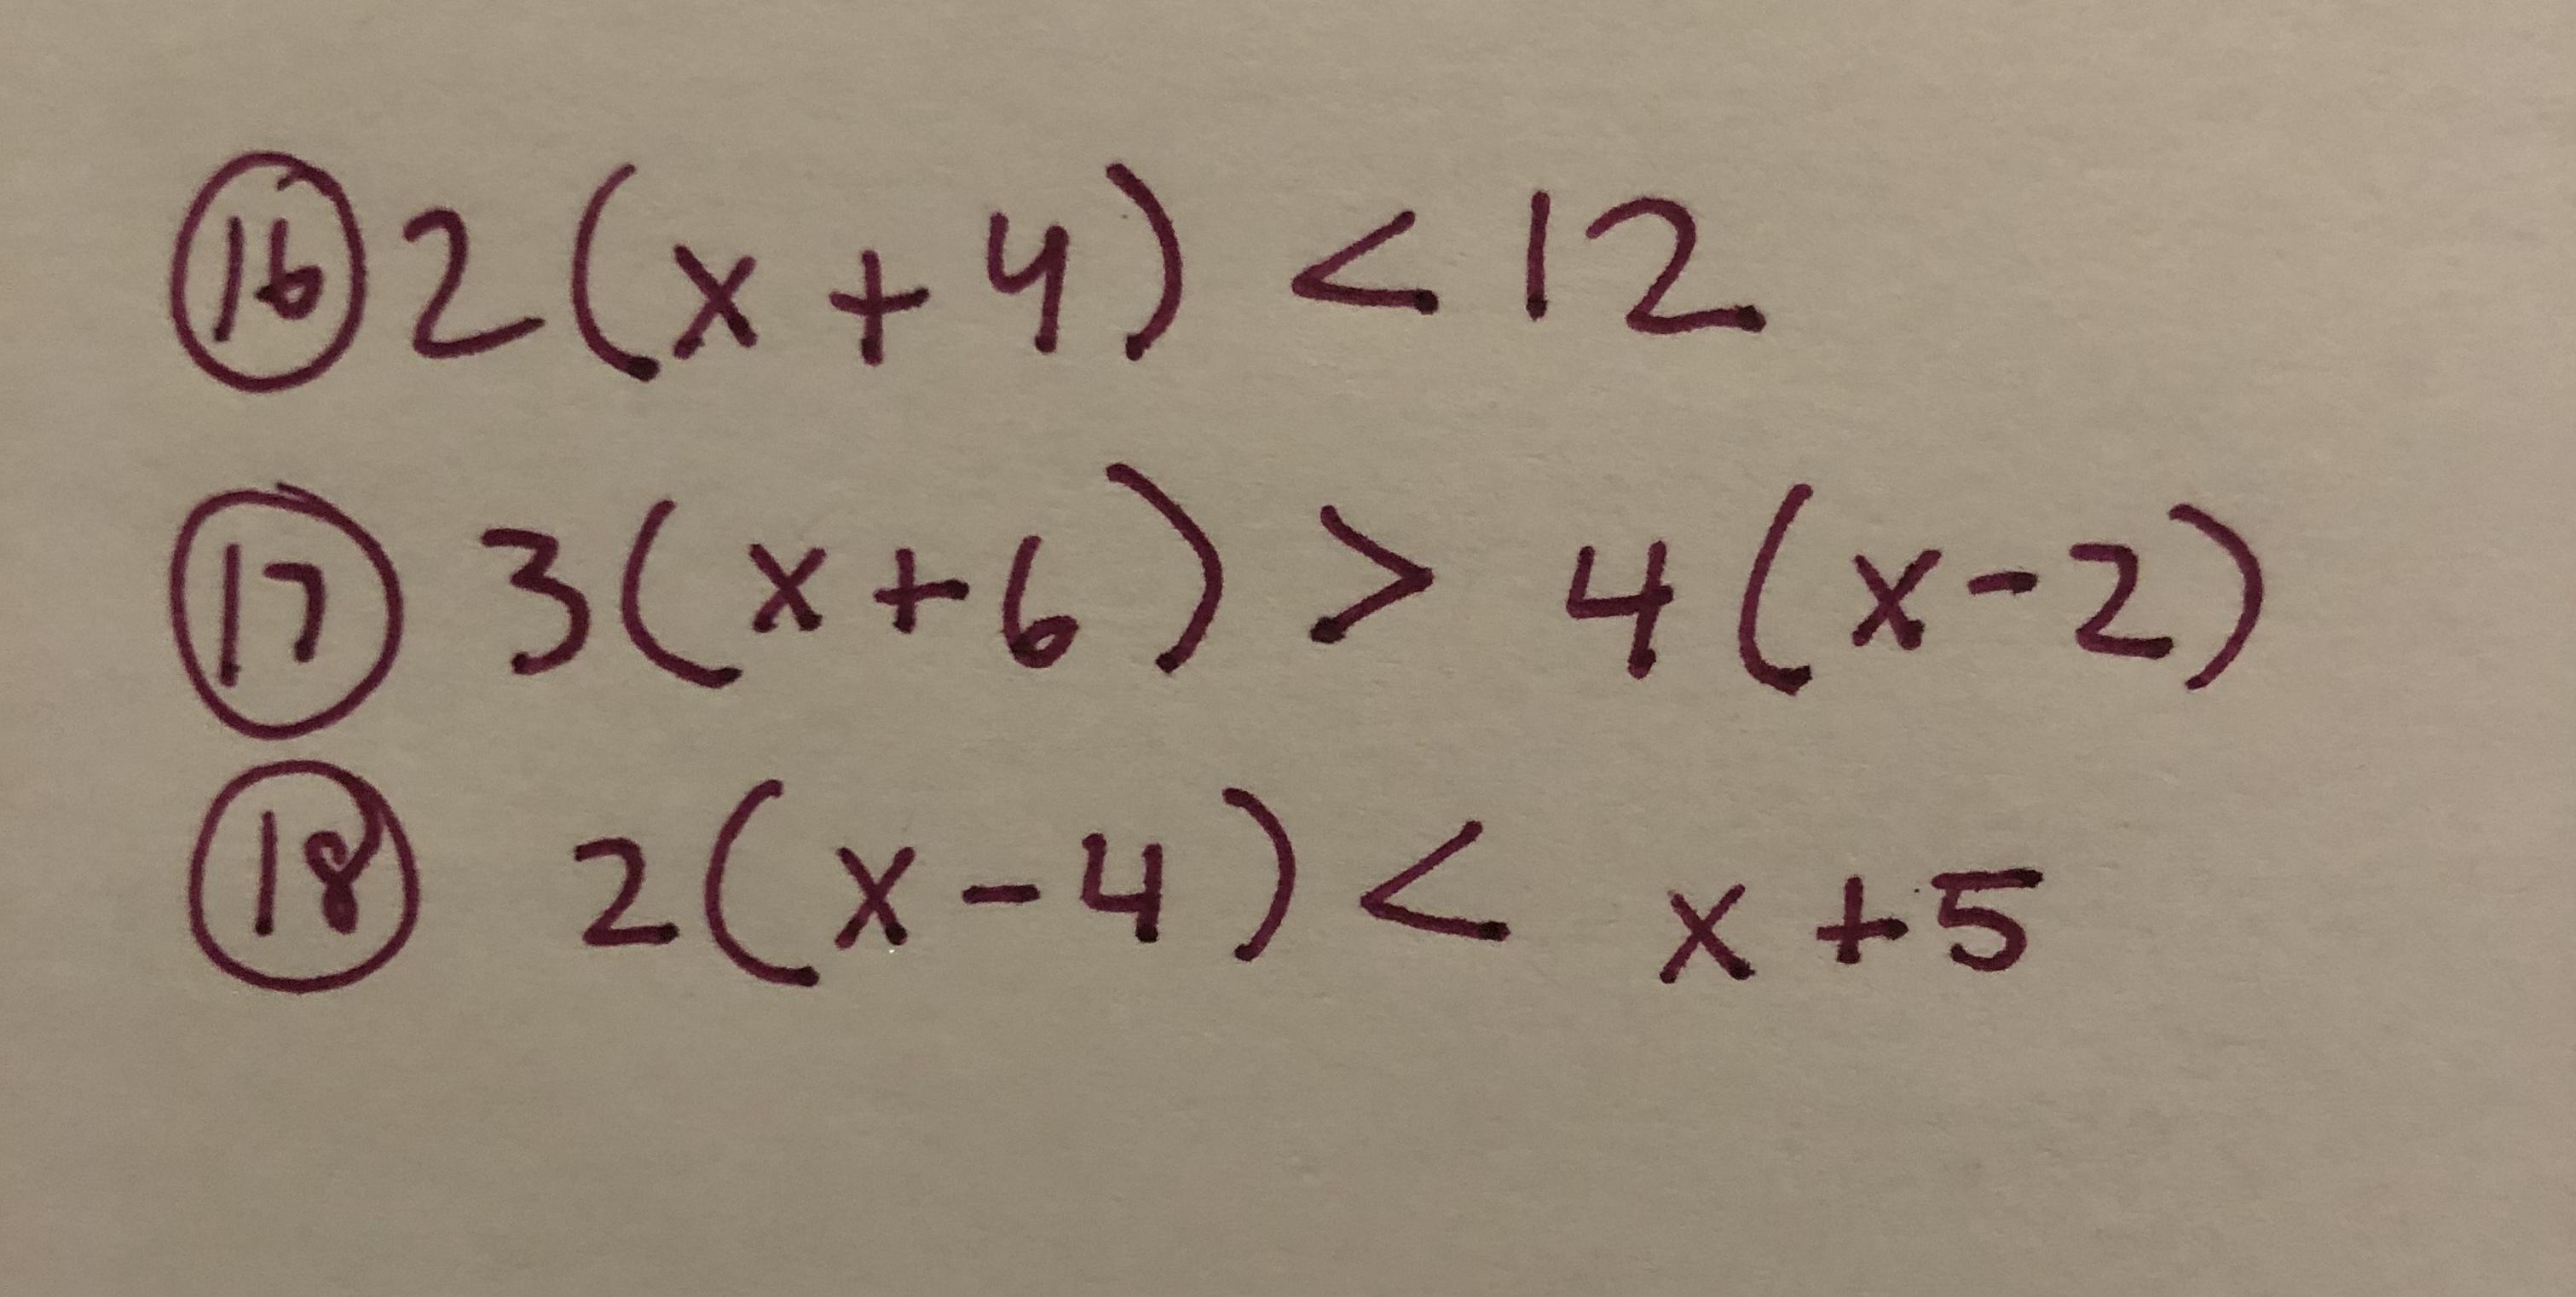 ⑯ 2(x+4) < 12
⑰ 3(x+6) > 4(x-2)
⑱ 2(x-4) < x+5